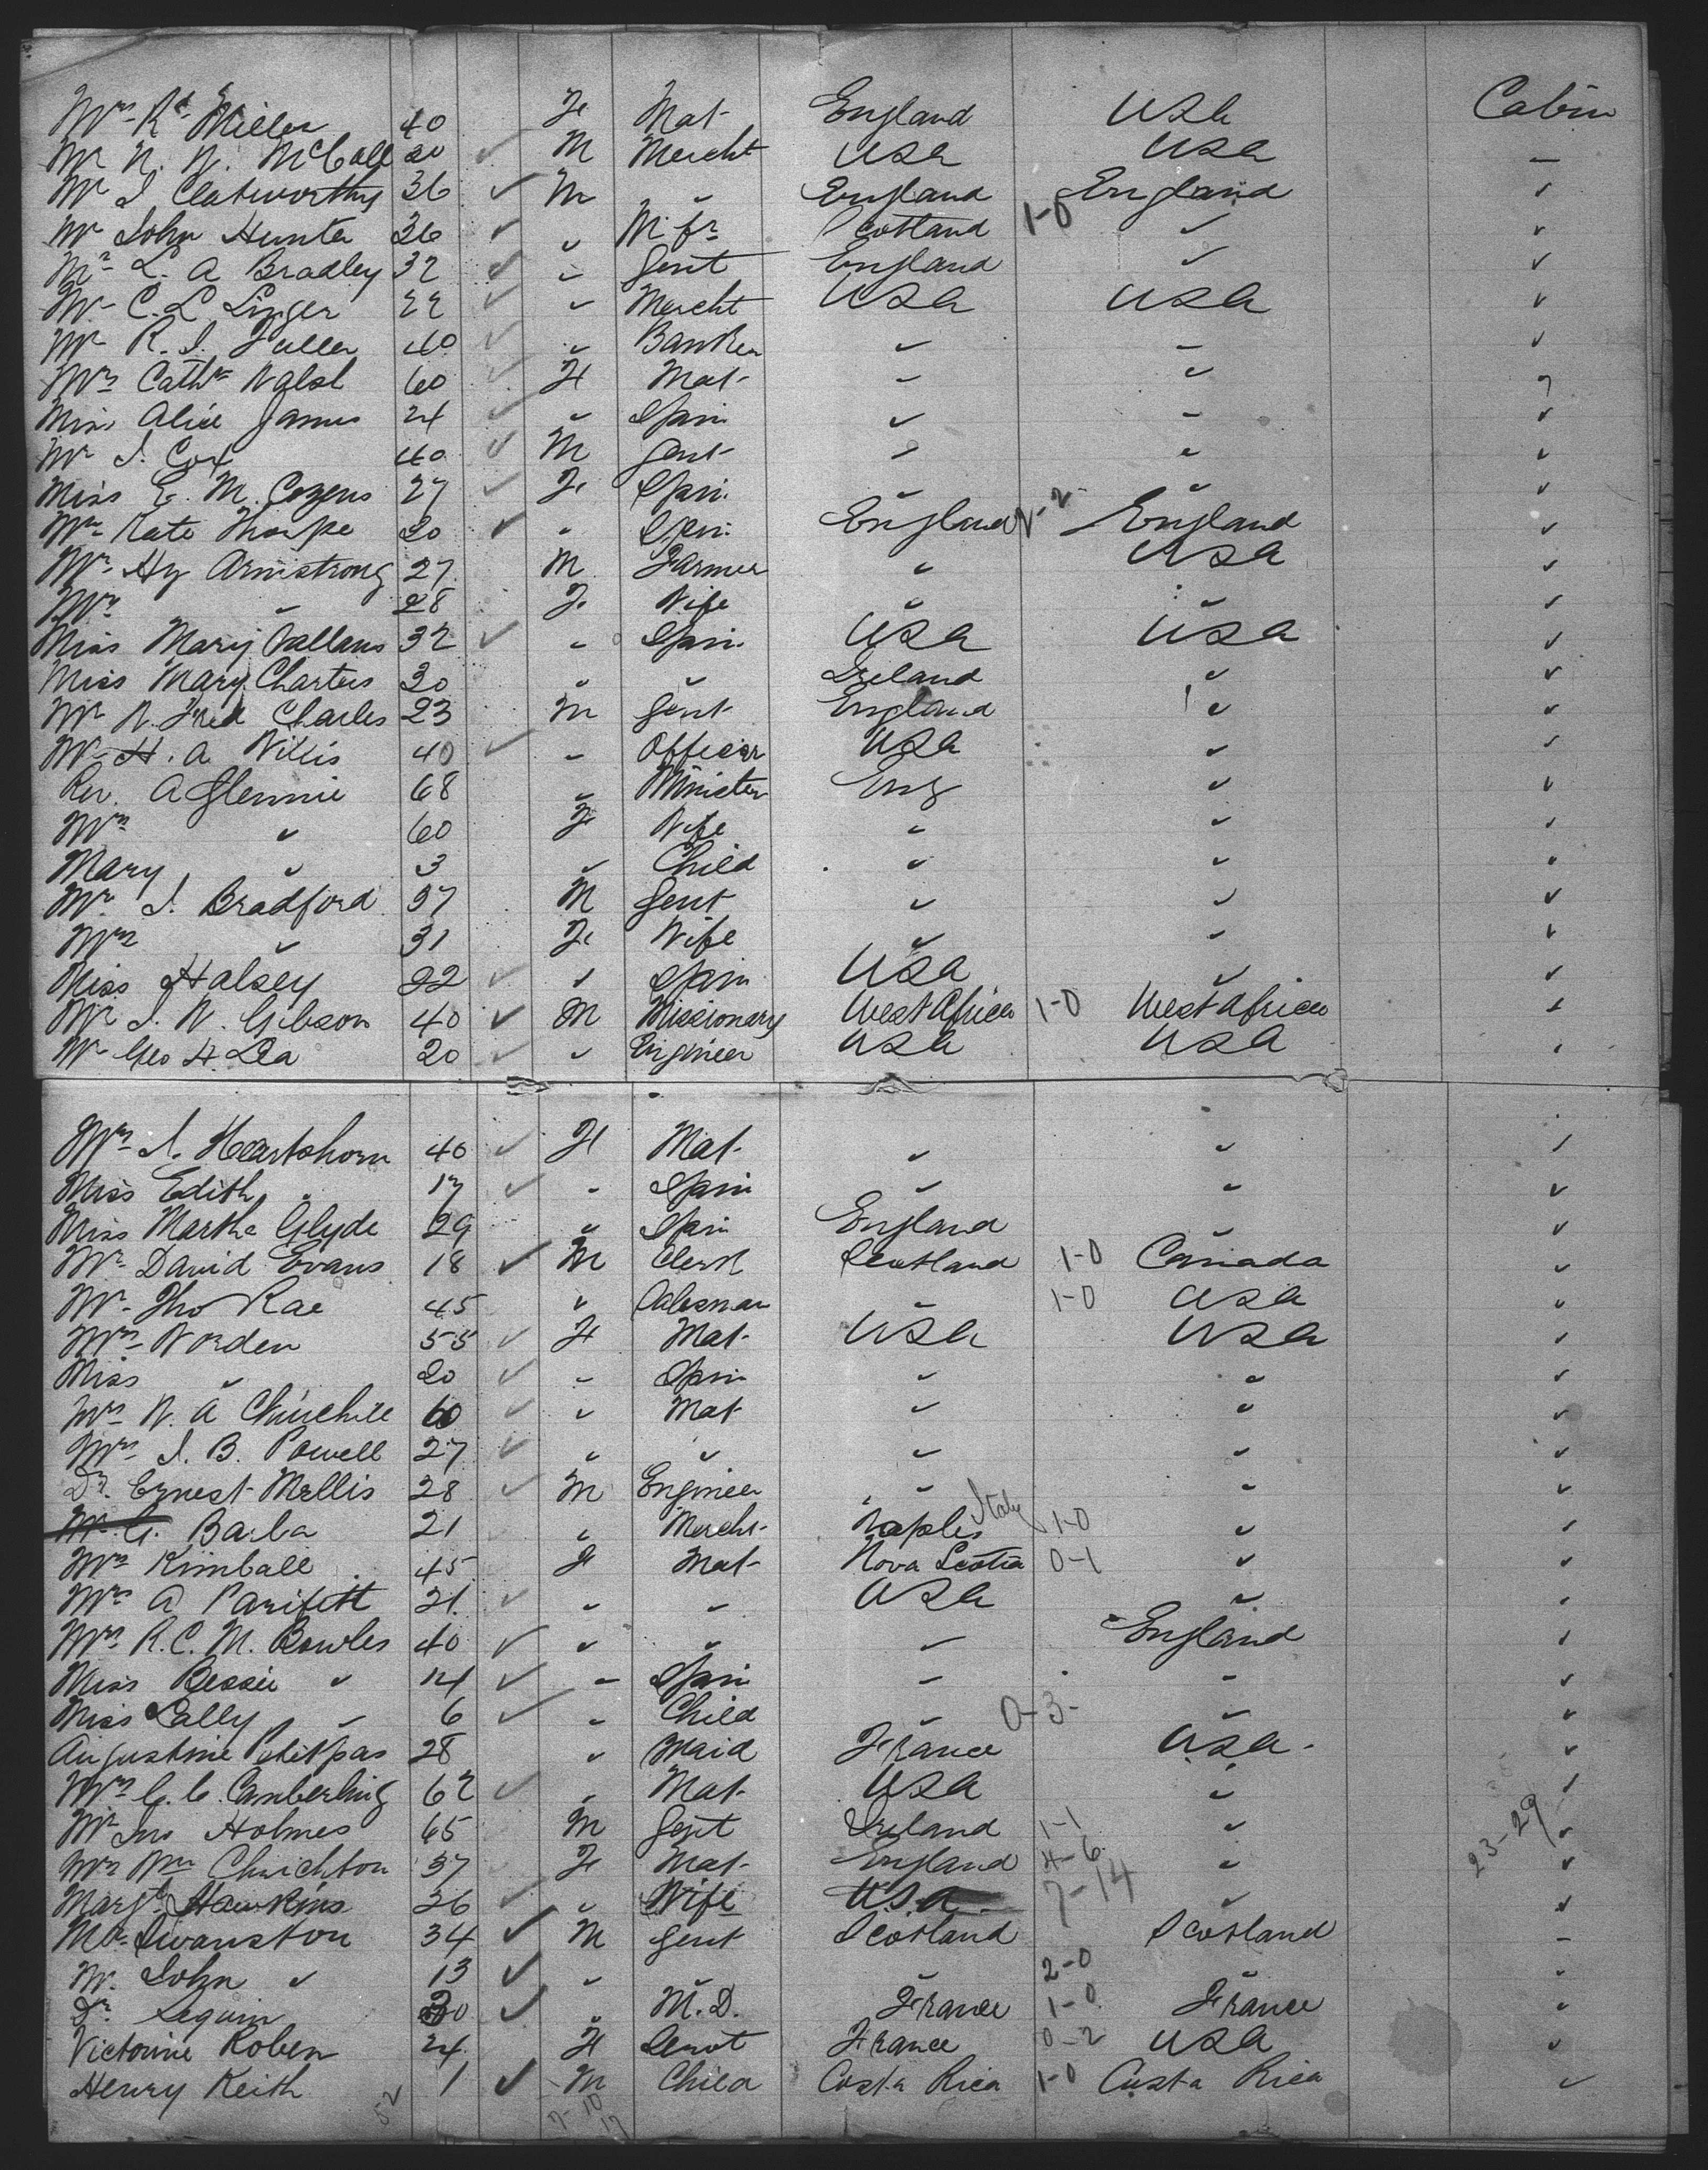 Mrs Rd Miller 40 Fe Mat- England USA Cabin
Mr N. N. McCall 20 ✓ M Mercht USA USA —
Mr J Clatworthy 36 ✓ M " England England ✓
Mr John Hunter 36 ✓ " Scotland 1-0 " ✓
Mr L. A Bradley 32 ✓ " Gent England " ✓
Mr C. L Linger 22 ✓ " Mercht USA USA ✓
Mr R. J. Fuller 40 ✓ " Banker " " ✓
Mrs Cathe 60 ✓ Fe Mat- " "
Miss Alice James 24 ✓ " Spin " " ✓
Mr J. Cox 40 ✓ M Gent " " ✓
Miss E. M. Cozens 27 ✓ Fe Spin " " ✓
Kate Thorpe 20 ✓ " Spin England England ✓
Mr Hy Armstrong 27 M Farmer " USA ✓
Mrs " 28 Fe Wife " " ✓
Miss Mary 32 ✓ " Spin USA USA ✓
Miss Mary Charters 30 " " Ireland " ✓
Mr W. Fred Charles 23 M Gent England " ✓
Mr H. A Willis 40 ✓ " Officer USA " ✓
Rev. A Glennie 68 " Minister Eng " ✓
Mrs " 60 Fe Wife " " ✓
Mary " 3 " Child " " ✓
Mr J. Bradford 37 M Gent " " ✓
Mrs " 31 Fe Wife " " ✓
Miss Halsey 22 ✓ " Spin USA " ✓
Mr J. W. Gibson 40 ✓ M Missionary West Africa 1-0 West Africa
Mr Geo H. Lea 20 ✓ " Engineer USA USA
Mrs J. Heartshorn 40 ✓ Fe Mat- " " ✓
Miss Edith " 17 ✓ " Spin " " ✓
Miss Martha Glyde 29 " Spin England " ✓
Mr David Evans 18 ✓ M Clerk Scotland 1-0 Canada ✓
Mr Tho Rae 45 " Salesman " 1-0 USA ✓
Mrs Norden 55 ✓ Fe Mat- USA USA ✓
Miss " 20 ✓ " Spin " " ✓
Mrs W. A Churchill 60 ✓ " Mat " " ✓
Mrs J. B. Powell 27 ✓ " " " " ✓
Dr. Ernest Mellis 28 ✓ M Engineer " " ✓
Mr G. Barba 21 " Mercht- Naples Italy 1-0 " ✓
Mrs Kimball 45 Fe Mat- Nova Scotia 0-1 " ✓
Mrs A 21 ✓ " " USA "
Mrs R. C. M. Bowles 40 ✓ " " " England
Miss Bessie " 14 ✓ " Spin " " ✓
Miss Lally " 6 ✓ " Child " 0-3- " ✓
Augustine Petitpas 28 " Maid France USA- ✓
Mrs C. C. Camberling 62 ✓ " Mat- USA " ✓
Mr Jno Holmes 65 M Gent Ireland 1-1 " 23-29 ✓
Mrs Wm Chrichton 37 Fe Mat- England 4-6 " ✓
Margt Hawkins 26 ✓ " Wife U.S.a. 7-14 " ✓
Mr Swanston 34 ✓ M Gent Scotland Scotland —
Mr. John " 13 ✓ " " " 2-0 "
Dr Seguin 30 ✓ " M.D. France 1-0 France ✓
Victorine Roben 24 Fe Servt France 0-2 USA ✓
Henry Keith 1 ✓ M Child Costa Rica 1-0 Costa Rica ✓
52 7-10 17